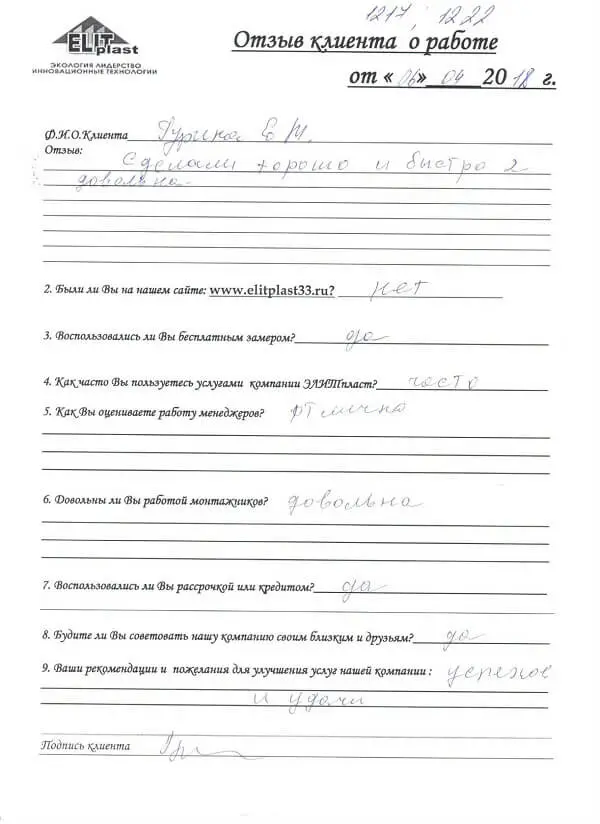 1217, 1222
ELIT plast
ЭКОЛОГИЯ ЛИДЕРСТВО
ИННОВАЦИОННЫЕ ТЕХНОЛОГИИ
Отзыв клиента о работе
от «06» 04 2018 г.
Ф.И.О.Клиента Гурина Е М.
Отзыв:
Сделали хорошо и быстро
довольна
2. Были ли Вы на нашем сайте: www.elitplast33.ru? нет
3. Воспользовались ли Вы бесплатным замером? да
4. Как часто Вы пользуетесь услугами компании ЭЛИТпласт? часто
5. Как Вы оцениваете работу менеджеров? отлично
6. Довольны ли Вы работой монтажников? довольна
7. Воспользовались ли Вы рассрочкой или кредитом? да
8. Будите ли Вы советовать нашу компанию своим близким и друзьям? да
9. Ваши рекомендации и пожелания для улучшения услуг нашей компании : успехов
и удачи
Подпись клиента